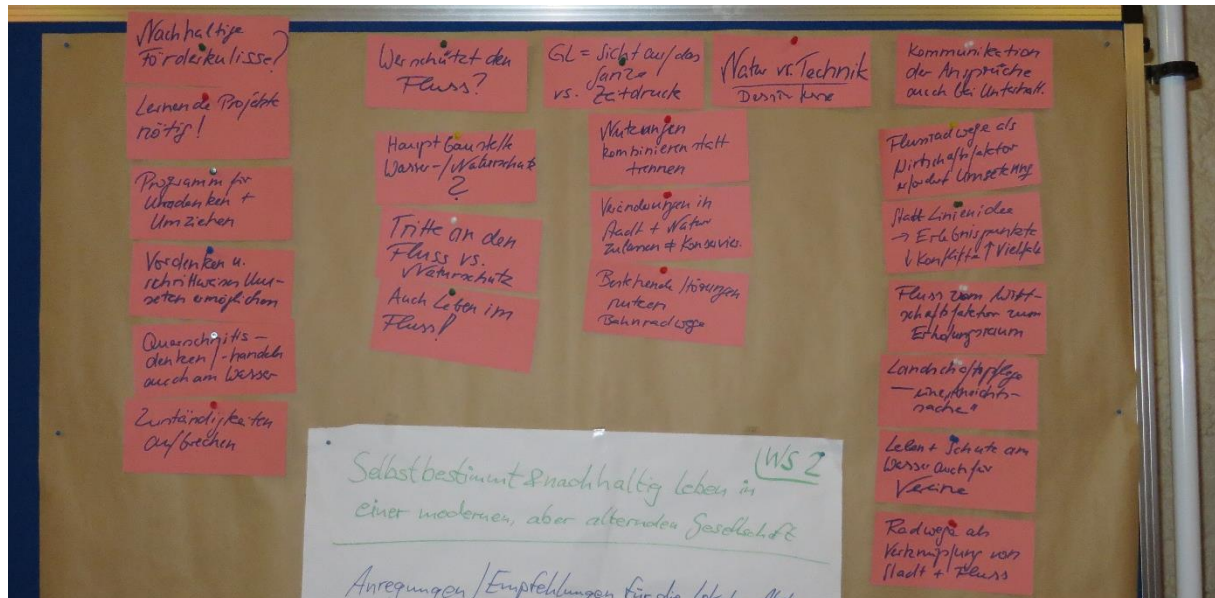 Nachhaltige
Förderkulisse?
Lernende Projekte
nötig!
Programm für
Umdenken +
Umziehen
Vordenken u.
schrittweises Um-
setzen ermöglichen
Querschnitts-
denken/-handeln
auch am Wasser
Zuständigkeiten
aufbrechen
Wer schützt den
Fluss?
Hauptbaustelle
Wasser-/Naturschutz
?
Tritte an den
Fluss vs.
Naturschutz
Auch Leben im
Fluss!
GL = Sicht auf das
Ganze
vs. Zeitdruck
Natur vs. Technik
Nutzungen
kombinieren statt
trennen
Veränderungen in
Stadt + Natur
zulassen ≠ Konservier.
Bestehende Lösungen
nutzen
Bahnradwege
Kommunikation
der Ansprüche
auch bei Unterhalt.
Flussradwege als
Wirtschaftsfaktor
erfordert Umsetzung
Statt Linienidee
→ Erlebnispunkte
↓ Konflikte ↑ Vielfalt
Fluss vom Wirt-
schaftsfaktor zum
Erholungsraum
Landschaftspflege
— eine Ansichts-
sache"
Leben + Schutz am
Wasser auch für
Vereine
Radwege als
Verknüpfung von
Stadt + Fluss
WS 2
Selbstbestimmt & nachhaltig leben in
einer modernen, aber alternden Gesellschaft
Anregungen / Empfehlungen für die